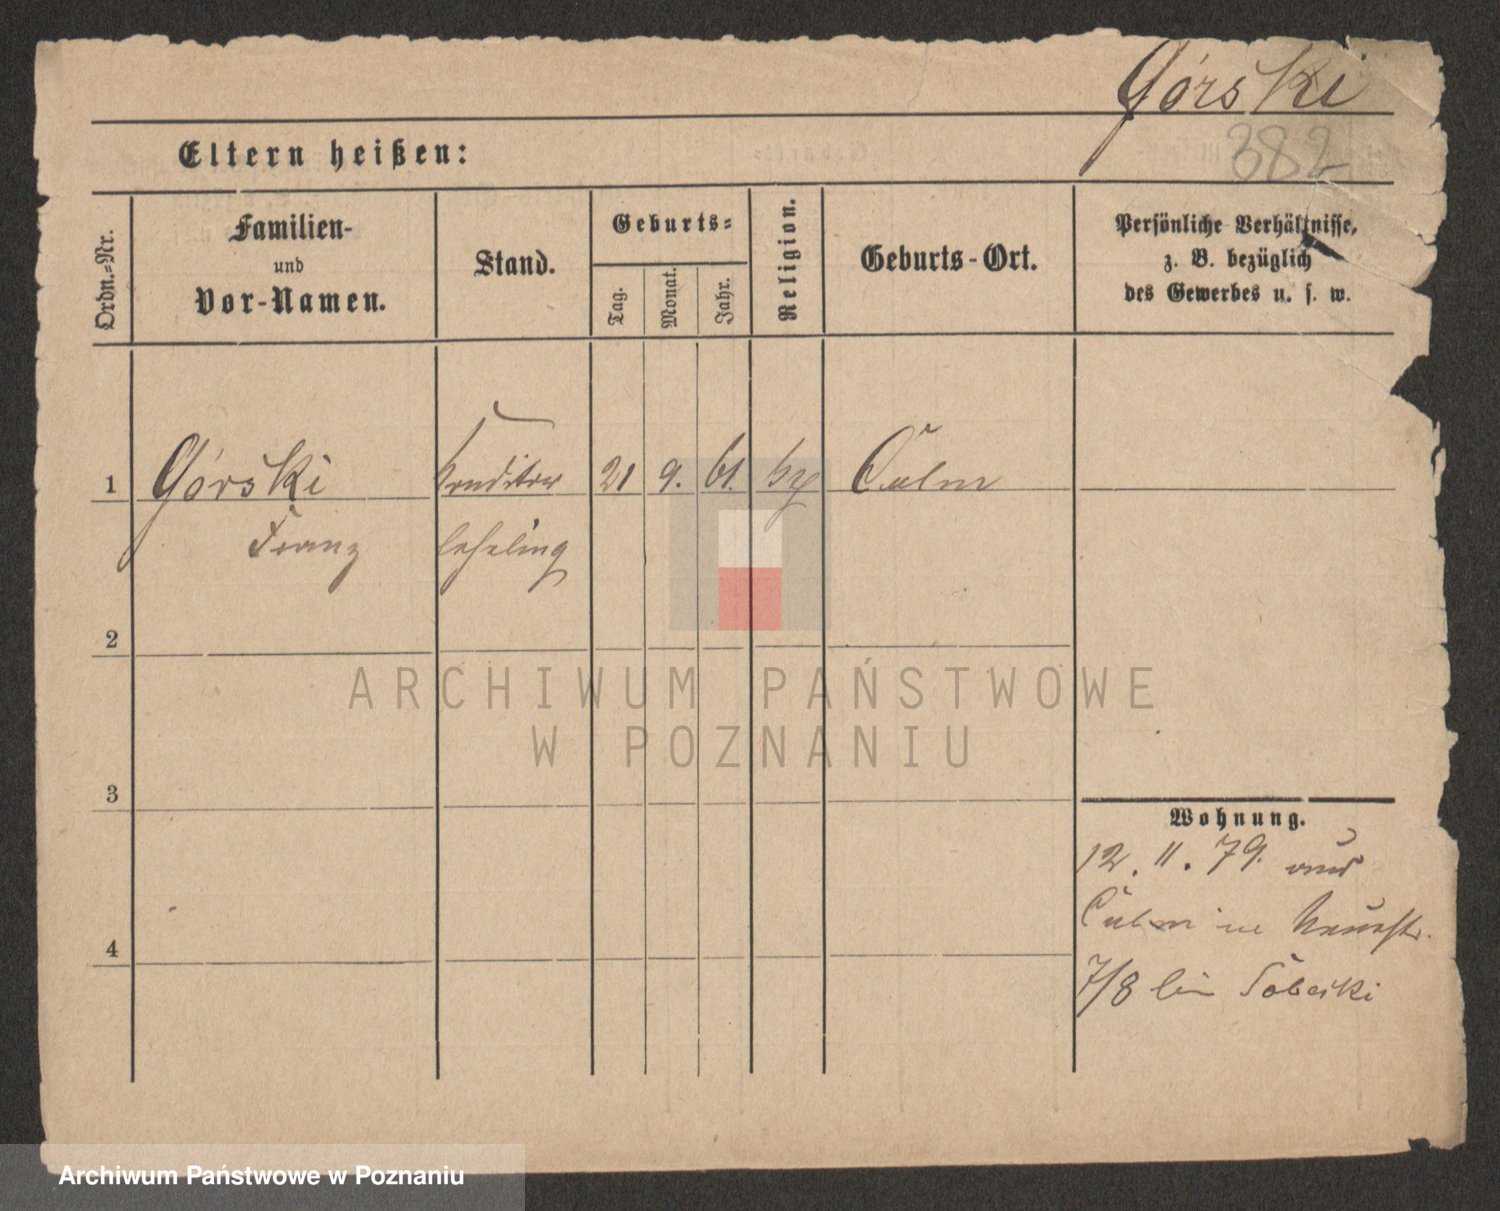 Górski
382
Eltern heißen:
Ordn.=Nr.
Familien-
und
Vor-Namen.
Stand.
Geburts=
Tag.
Monat.
Jahr.
Religion.
Geburts-Ort.
Persönliche Verhältnisse,
z. B. bezüglich
des Gewerbes u. s. w.
1 Górski Konditor 21 9. 61. Culm
Franz lehrling
2
3
4
Wohnung.
12. 11. 79. aus
Culm in
7/8 bei
ARCHIWUM PAŃSTWOWE
W POZNANIU
Archiwum Państwowe w Poznaniu